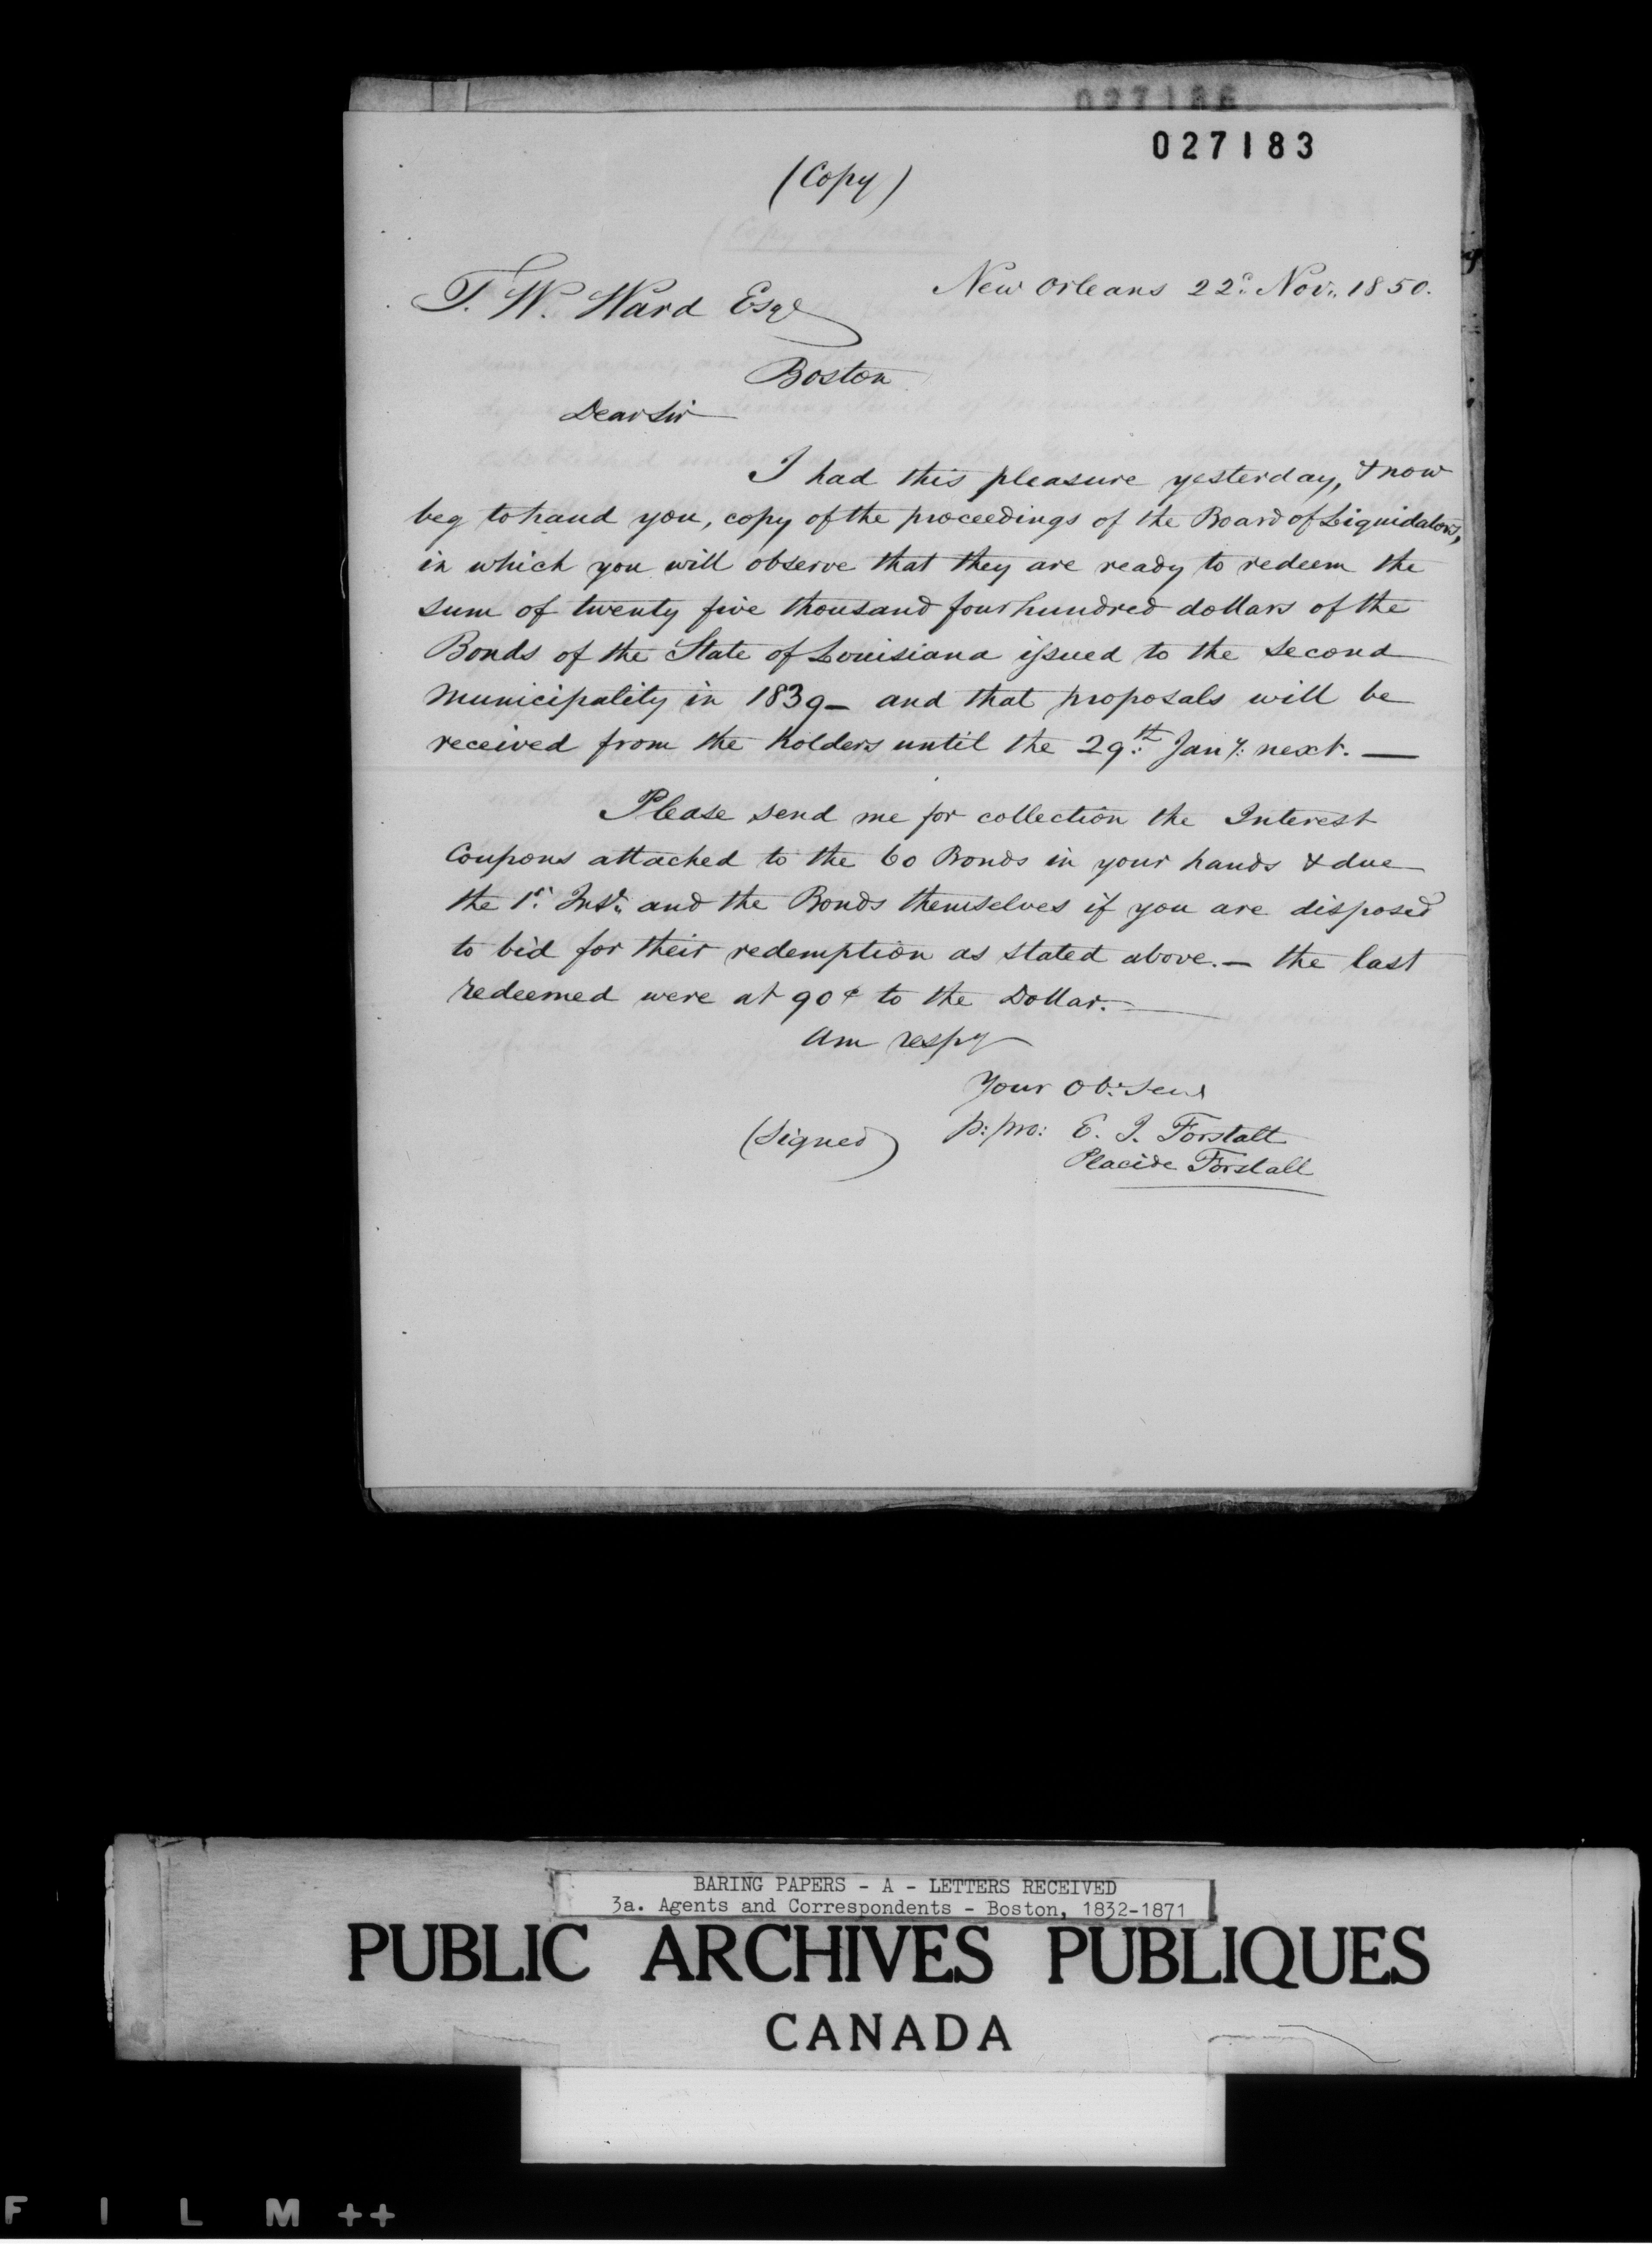 027186
027183
(Copy)
New Orleans 22d. Nov. 1850.
T. W. Ward Esqr
Boston
Dear Sir
I had this pleasure yesterday, & now
beg to hand you, copy of the proceedings of the Board of Liquidators,
in which you will observe that they are ready to redeem the
sum of twenty five thousand four hundred dollars of the
Bonds of the State of Louisiana issued to the Second
Municipality in 1839 – and that proposals will be
received from the holders until the 29th. Jany. next. —
Please send me for collection the Interest
Coupons attached to the 60 Bonds in your hands & due
the 1st. Inst. and the Bonds themselves if you are disposed
to bid for their redemption as stated above. – the last
redeemed were at 90¢ to the Dollar. —
Am respy
Your Ob. Servt
(Signed) p: pro: E. J. Forstall
Placide Forstall
BARING PAPERS - A - LETTERS RECEIVED
3a. Agents and Correspondents - Boston, 1832-1871
PUBLIC ARCHIVES PUBLIQUES
CANADA
F I L M ++